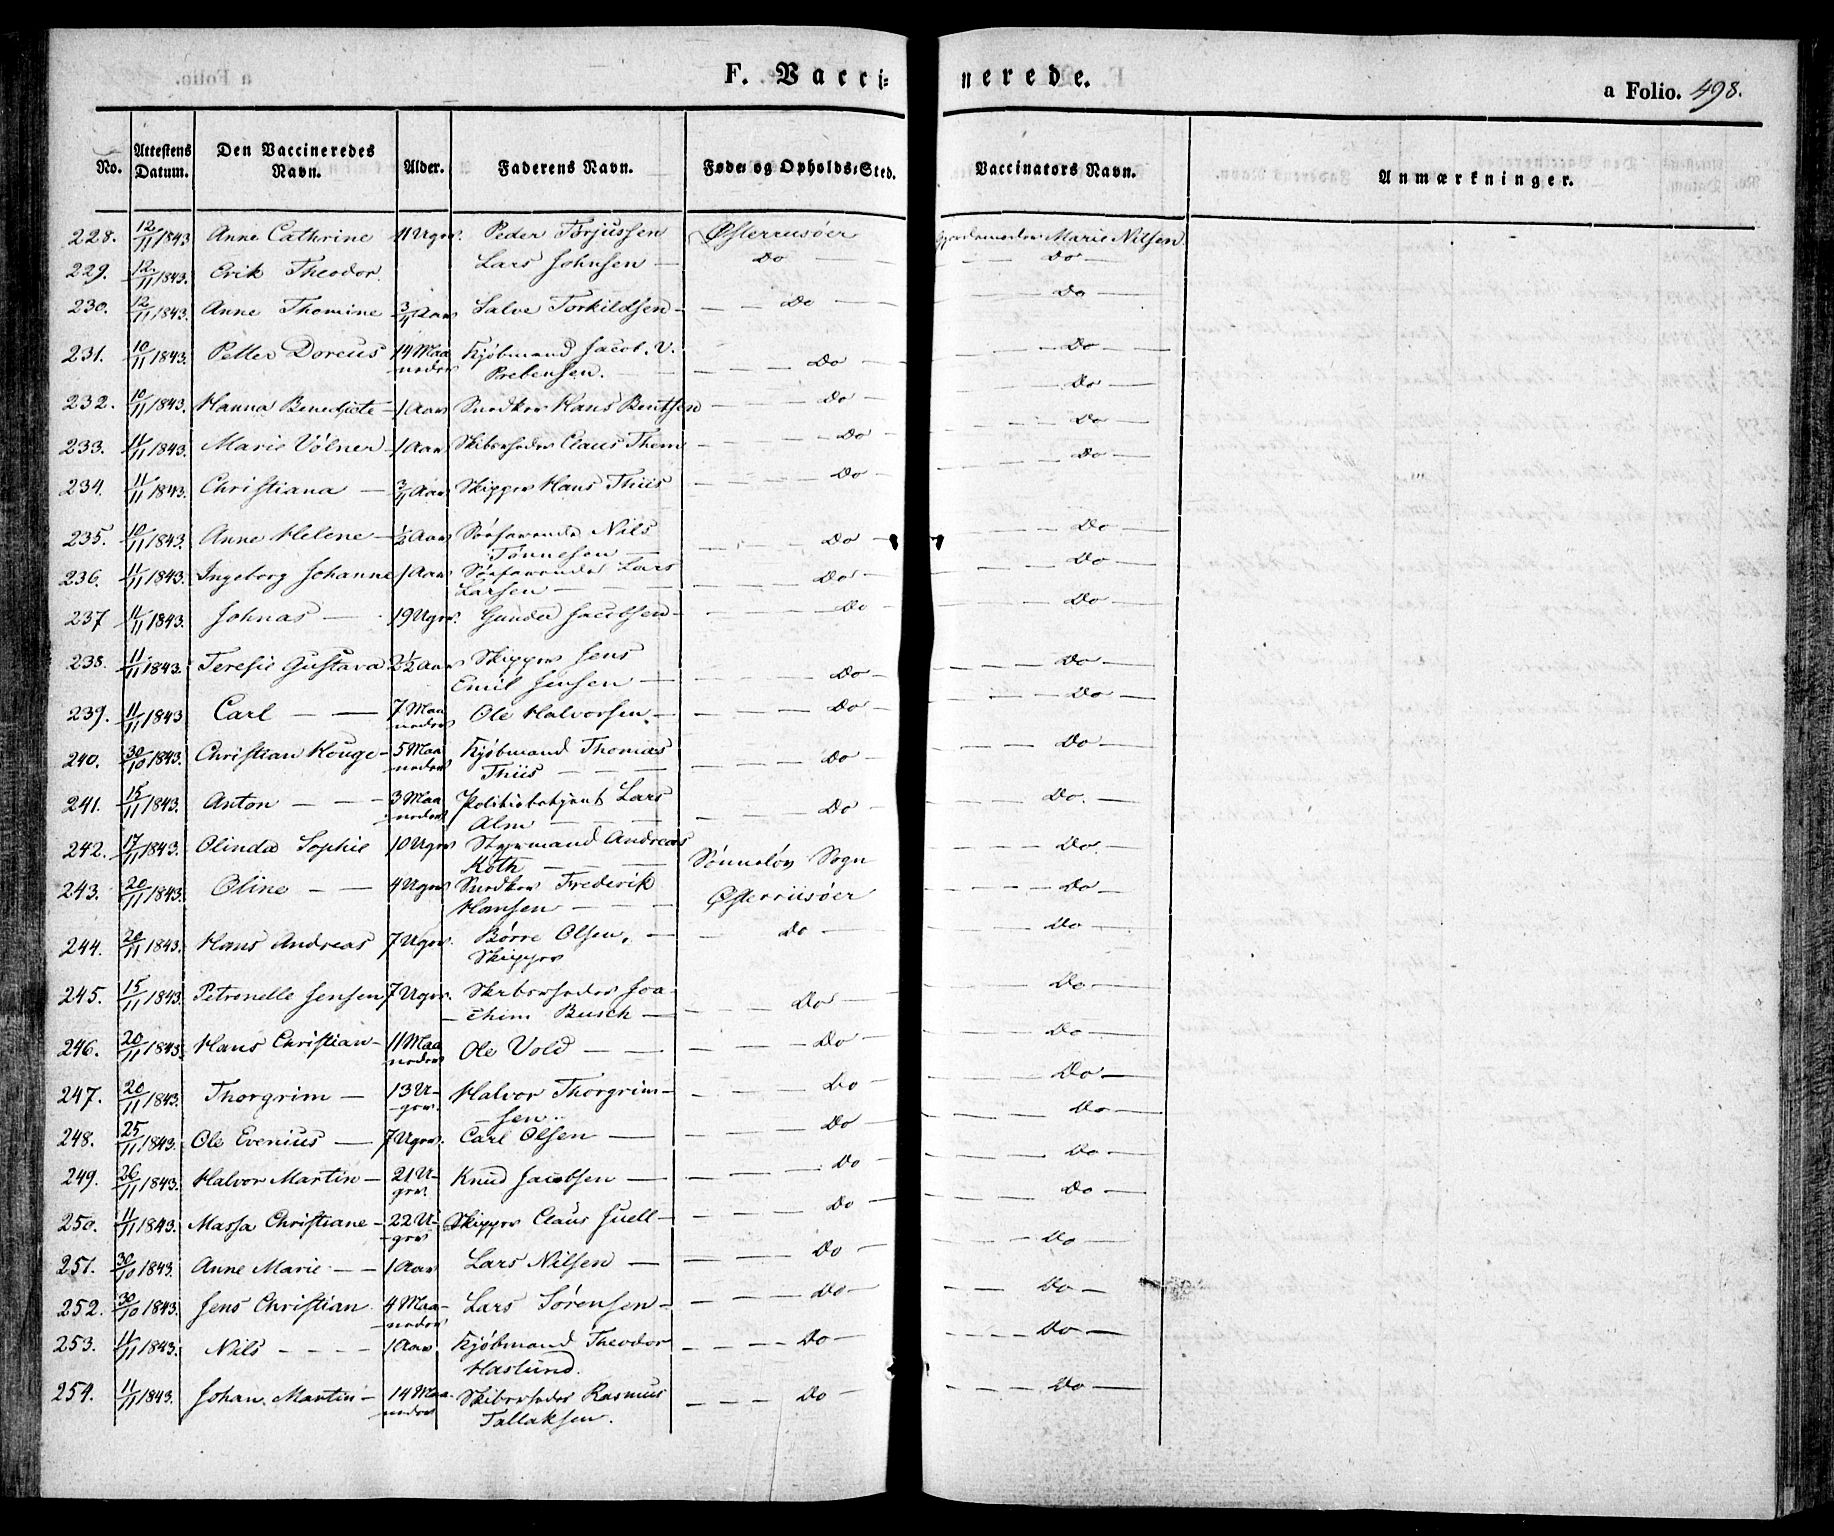 F. Vacci=nerede.
a Folio. 498.
No. Attestens Datum. Den Vaccineredes Navn. Alder. Faderens Navn. Føde og Opholds=Sted. Vaccinators Navn. Anmærkninger.
228. 12/11 1843 Anne Cathrine 11 Uger. Peder Torjussen Østerriisöer Jordemoder Marie Nilsen
229. 12/11 1843. Erik Theodor Lars Johnsen — Do — Do —
230. 12/11 1843. Anne Thomine 3/4 Aar Salve Torkildsen — Do — Do
231. 10/11 1843. Petter Dorcus 14 Maa Kjöbmand Jacob. V. — Do
neder Prebensen. — Do —
232. 10/11 1843. Hanna Benedicte — 1 Aar Snedker Hans Bentsen — Do — Do
233. 11/11 1843. Marie Völner 1 Aar Skibsreder Claus Thom — Do — Do
234. 11/11 1843. Christiana — 3/4 Aar Skipper Hans Thiis — Do — Do
235. 10/11 1843. Anne Helene — 1/2 Aar Söefarende Nils — Do — Do
Tönnesen —
236. 11/11 1843. Ingeborg Johanne 1 Aar Söefarende Lars — Do — Do
Larsen —
237 11/11 1843. Johnas — 19 Uger. Gunder Jacobsen — Do — Do
238. 11/11 1843. Teresie Gustava 2 1/2 Aar Skipper Jens — Do —
Emil Jensen — Do —
239. 11/11 1843 Carl — — 7 Maa Ole Halvorsen. — Do — Do —
neder
240. 30/10 1843. Christian Houge — 5 Maa Kjöbmand Thomas — Do — Do —
neder Thiis — — —
241. 15/11 1843. Anton — — — 3 Maa Politiebetjent Lars — Do — Do. —
neder Alm — — —
242. 17/11 1843. Olinda Sophie 10 Uger Styrmand Andreas Sönnelöv Sogn — Do.
Roth — —
243. 20/11 1843. Oline — — 4 Uger Snedker Frederik Østerriisöer — Do —
Hansen — — —
244. 20/11 1843. Hans Andreas 7 Uger. Börre Olsen, — — do — Do —
Skipper
245. 15/11 1843. Petronelle Jensen 7 Uger. Skibsreder Joa- — Do — Do —
chim Busch —
246. 20/11 1843 Hans Christian — 11 Maa Ole Vold — — Do — Do —
neder
247. 20/11 1843. Thorgrim — 13 U- Halvor Thorgrim- — Do — Do —
ger. sen
248. 25/11 1843. Ole Evenius — 7 Uger. Carl Olsen — — Do — Do —
249. 26/11 1843. Halvor Martin — 21 U- Knud Jacobsen — — Do — Do —
ger.
250. 11/11 1843. Massa Christiane — 22 U- Skipper Claus Juell — — Do — Do —
ger
251. 30/10 1843. Anne Marie — — 1 Aar Lars Nilsen — — Do — Do
252. 30/10 1843. Jens Christian. 4 Maa- Lars Sörensen — — Do — Do —
neder
253. 11/11 1843. Nils — — — — 1 Aar Kjöbmand Theodor — Do — Do —
Haslund.
254. 11/11 1843. Johan Martin — 14 Maa- Skibsreder Rasmus — Do — Do —
neder Tallaksen.